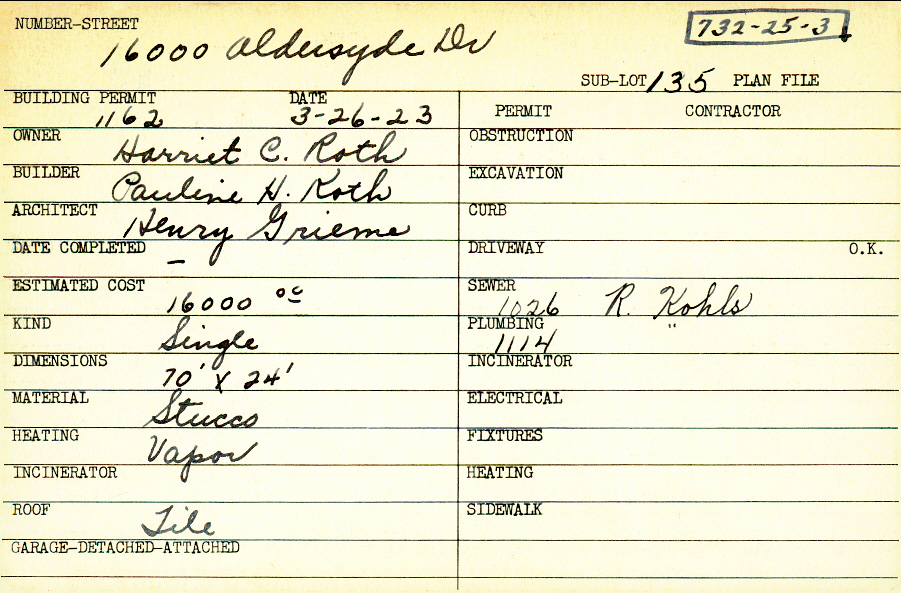 NUMBER-STREET
16000 Aldersyde Dr
732-25-3
SUB-LOT 135 PLAN FILE
BUILDING PERMIT DATE
1162 3-26-23
PERMIT CONTRACTOR
OWNER Harriet C. Roth
OBSTRUCTION
BUILDER Pauline H. Roth
EXCAVATION
ARCHITECT Henry Grieme
CURB
DATE COMPLETED –
DRIVEWAY O.K.
ESTIMATED COST 16000 00
SEWER 1026 R. Kohls
KIND Single
PLUMBING 1114 "
DIMENSIONS 70' X 24'
INCINERATOR
MATERIAL Stucco
ELECTRICAL
HEATING Vapor
FIXTURES
INCINERATOR
HEATING
ROOF Tile
SIDEWALK
GARAGE-DETACHED-ATTACHED